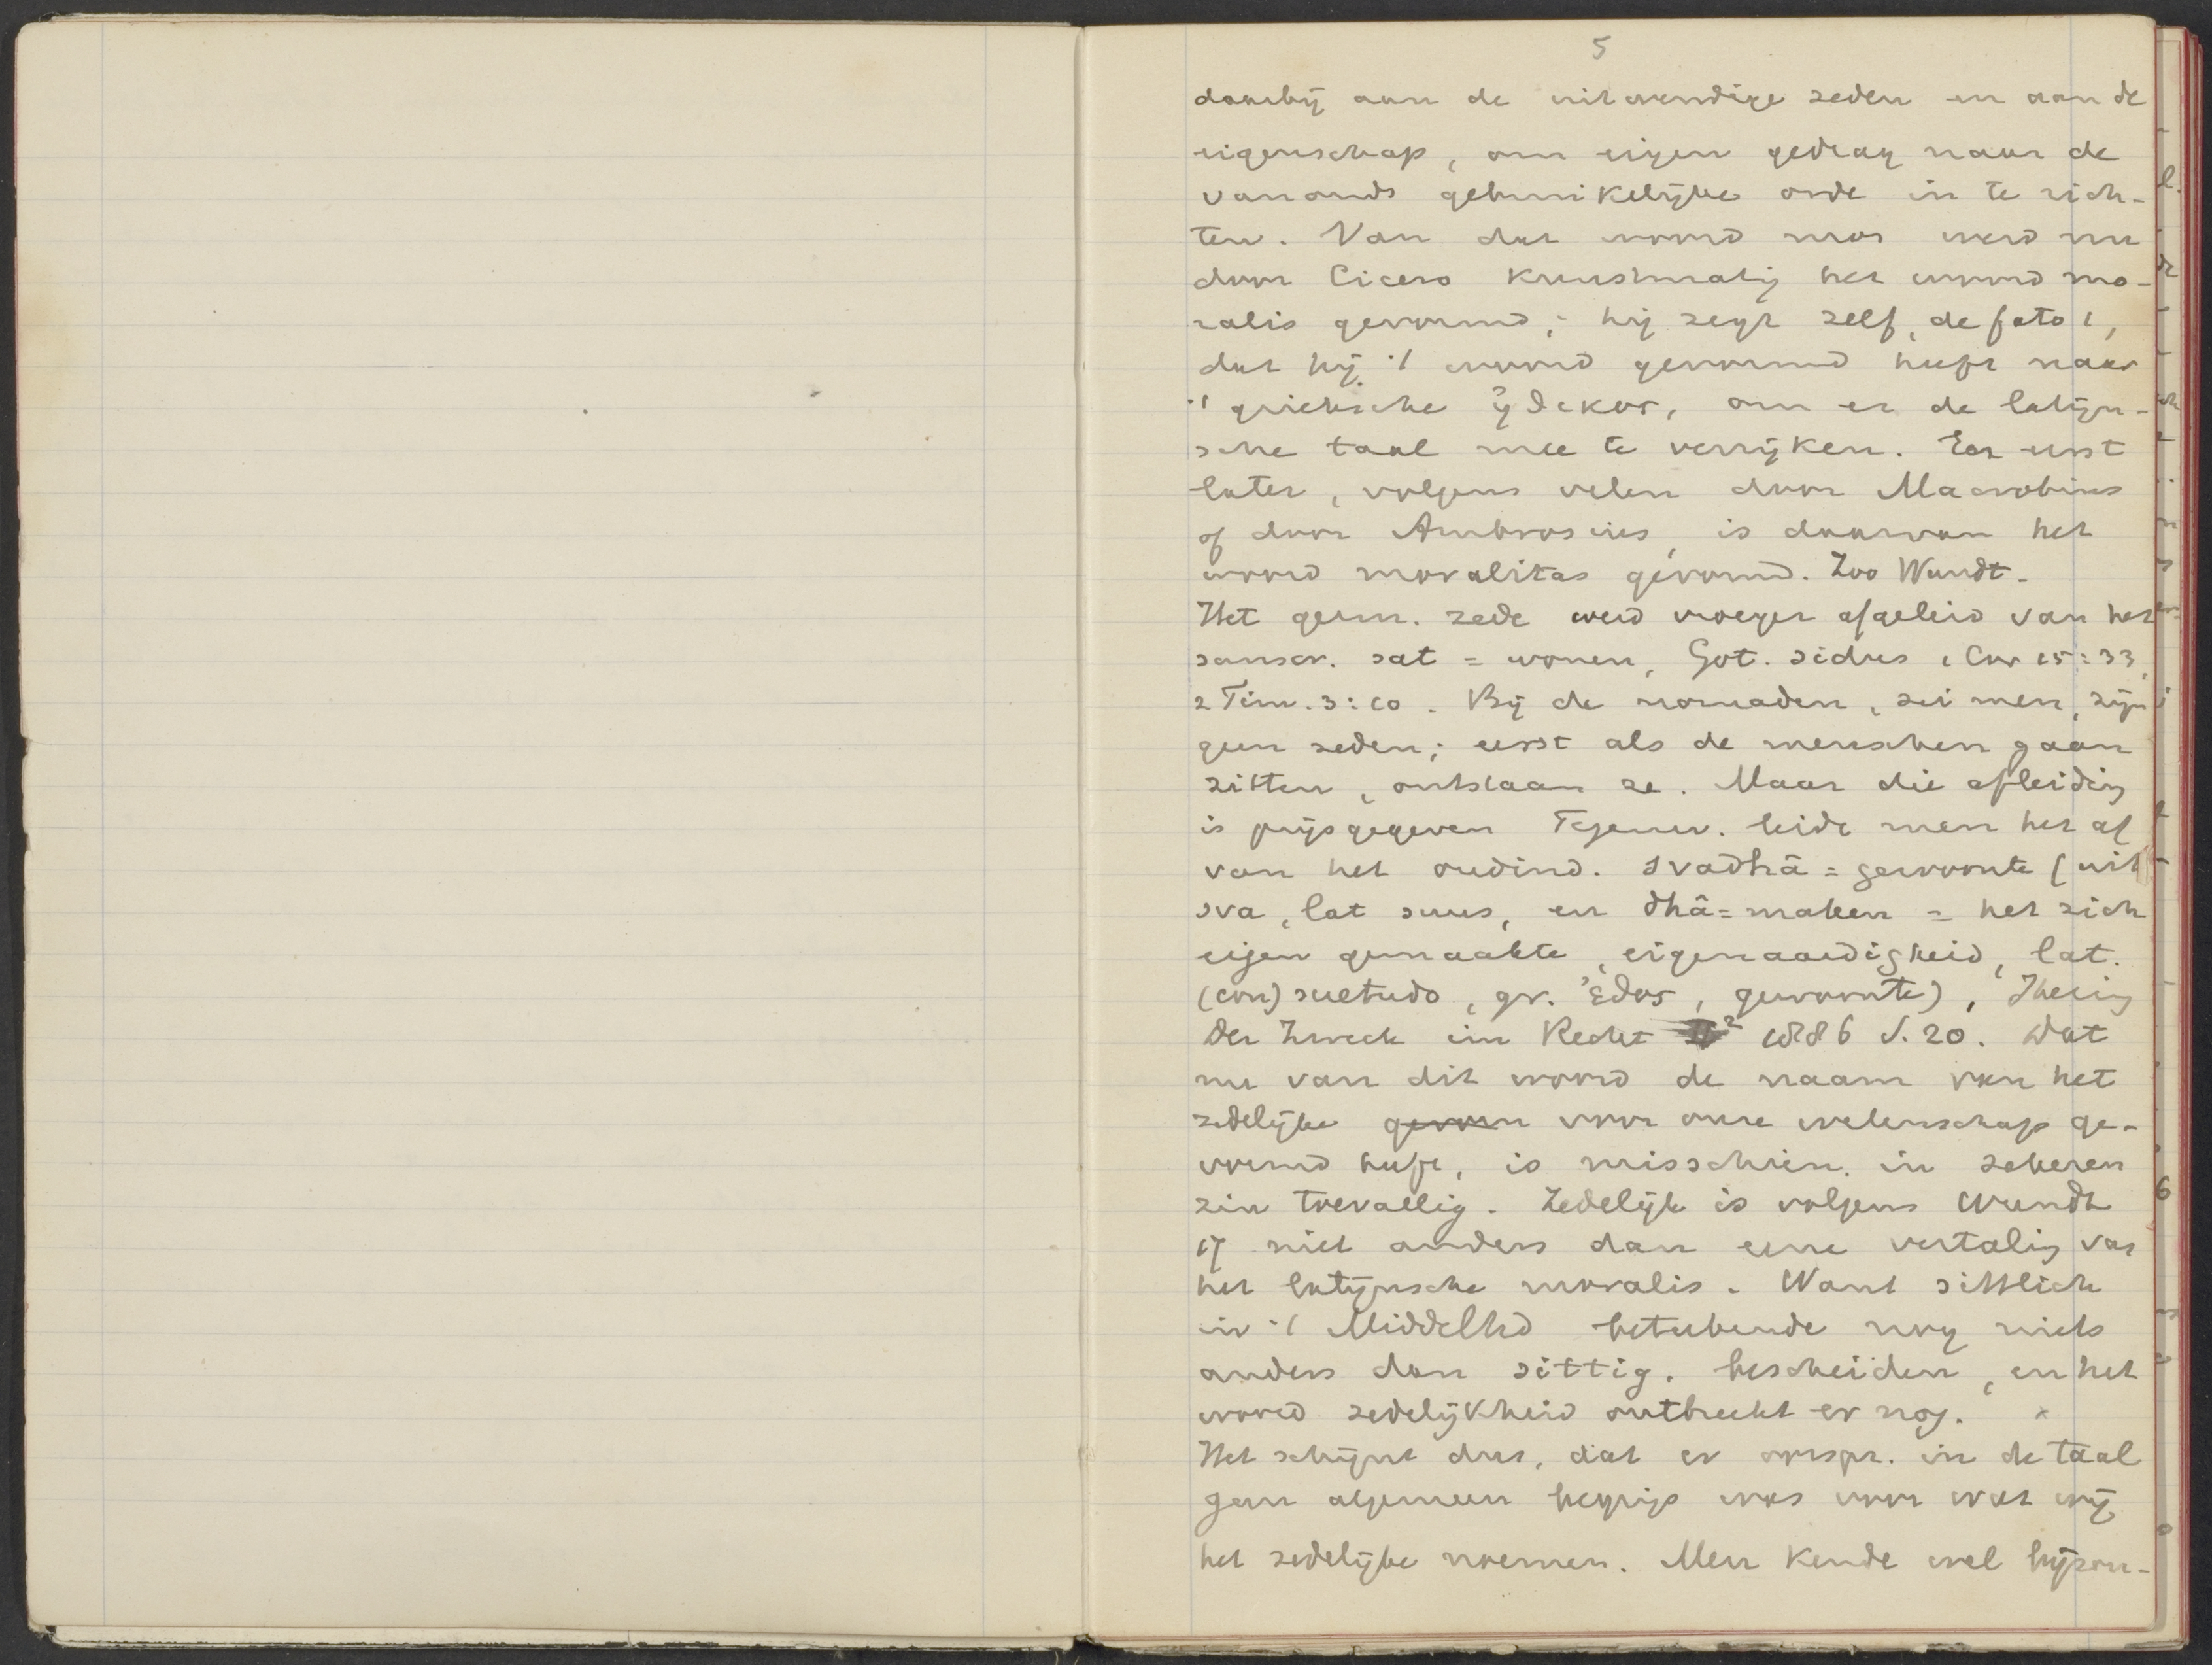 5
daarbij aan de uitwendige zeden en aan de
eigenschap, om eigen gedrag naar de
vanouds gebruikelijke orde in te rich-
ten. Van dat woord mos werd nu
door Cicero kunstmatig het woord mo-
ralis gevormd; hij zegt zelf, de fato 1,
dat hij 't woord gevormd heeft naar
't grieksche ἠθικος, om er de latijn-
sche taal mee te verrijken. En eerst
later, volgens velen door Macrobius
of door Ambrosius, is daarvan het
woord moralitas gevormd. Zoo Wundt.
Het germ. zede werd vroeger afgeleid van het
sanscr. sat = wonen, Got. sidus 1 Cor 15:33,
2 Tim. 3:10. Bij de nomaden, zei men, zijn
geen zeden; eerst als de menschen gaan
zitten, ontstaan ze. Maar die afleiding
is prijsgegeven Tegenw. leidt men het af
van het oudind. svadhâ = gewoonte (uit
sva, lat suus, en dhâ = maken = het zich
eigen gemaakte, eigenaardigheid, lat.
(con)suetudo, gr. ἐθος, gewoonte), Ihering
Der Zweck im Recht II² 1886 S. 20. Dat
nu van dit woord de naam van het
zedelijke gevorm voor onze wetenschap ge-
vormd heeft, is misschien in zekeren
zin toevallig. Zedelijk is volgens Wundt
17 niet anders dan eene vertaling van
het latijnsche moralis. Want sittlich
in 't Middelhd beteekende nog niets
anders dan sittig, bescheiden, en het
woord zedelijkheid ontbreekt er nog. x
Het schijnt dus, dat er oorspr. in de taal
geen algemeen begrip was voor wat wij
het zedelijke noemen. Men kende wel bijzon-